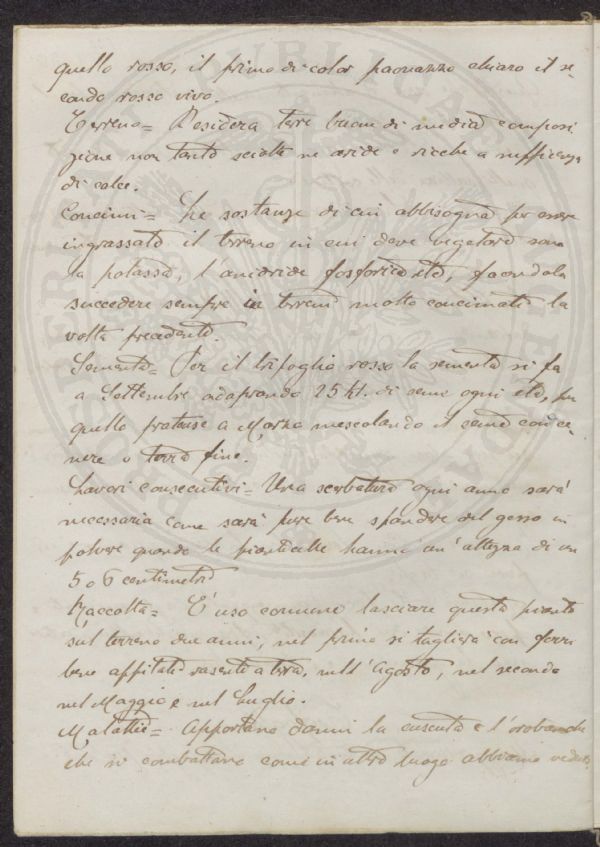 quello rosso, il primo di color paonazzo chiaro il se-
condo rosso vivo.
Terreno= Desidera terre buone di media composi
zione non tanto sciolte ne aride e ricche a sufficienza
di calce.
Concimi= Le sostanze di cui abbisogna per essere
ingrassato il terreno in cui deve vegetare sono
la potassa, l'anidride fosforica etc, facendola
succedere sempre in terreni molto concimati la
volta precedente.
Sementa= Per il trifoglio rosso la sementa si fa
a Settembre adoprando 25 kl. di seme ogni eta, per
quello pratense a Marzo mescolando il seme con ce-
nere o terra fine.
Lavori consecutivi= Una serbatura ogni anno sarà
necessaria come sarà pure bene spandere del gesso in
polvere quando le pianticelle hanno un'altezza di un
5 o 6 centimetri
Raccolta= È uso comune lasciare questa pianta
sul terreno due anni, nel primo si taglierà con ferri
bene affilati rasente a terra, nell'Agosto, nel secondo
nel Maggio e nel Luglio.
Malattie= Apportano danni la cuscuta e l'orobanche
che si combattano come in altro luogo abbiamo veduto.
PUBLICAE
PROSPERITATI
AUGENDAE